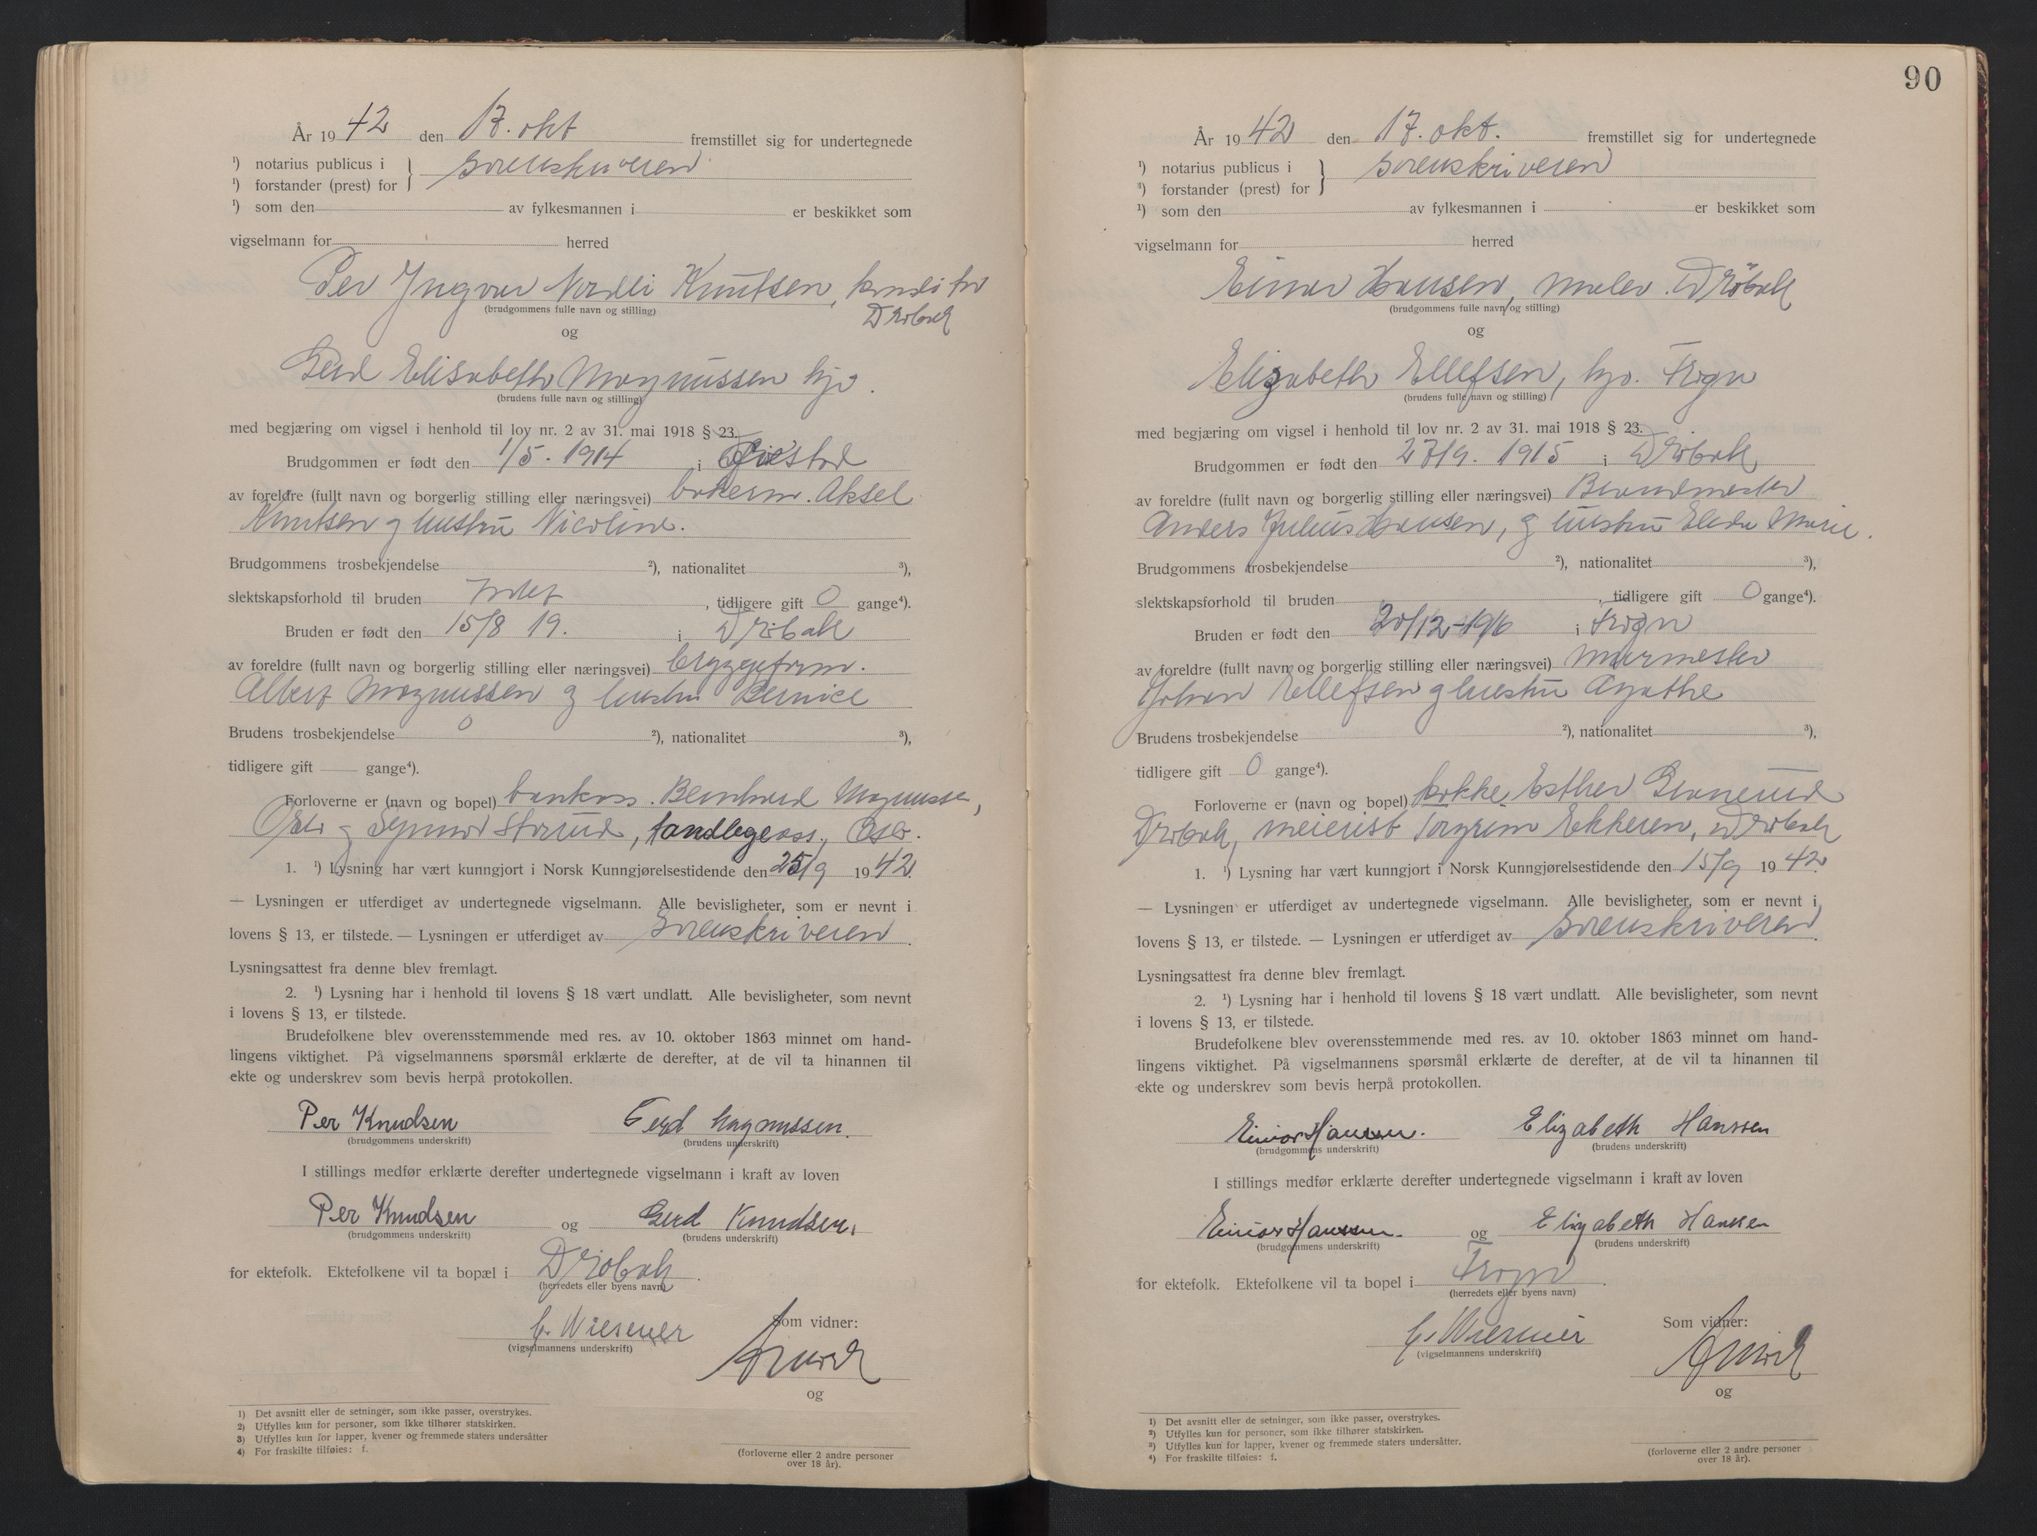 År 1942 den 17. okt fremstillet sig for undertegnede
¹) notarius publicus i } sorenskriveren
¹) forstander (prest) for
¹) som den av fylkesmannen i er beskikket som
vigselmann for herred
Per Yngvar Nordli Knutsen, konditor
Drøbak
(brudgommens fulle navn og stilling)
og
Gerd Elisabeth Magnussen hjv.
(brudens fulle navn og stilling)
med begjæring om vigsel i henhold til lov nr. 2 av 31. mai 1918 § 23.
Brudgommen er født den 1/5. 1914 i
av foreldre (fullt navn og borgerlig stilling eller næringsvei) bakerm. Aksel
Knutsen og hustru Nicoline.
Brudgommens trosbekjendelse ²), nationalitet ³),
slektskapsforhold til bruden Intet, tidligere gift 0 gange⁴).
Bruden er født den 15/8 19. i Drøbak
av foreldre (fullt navn og borgerlig stilling eller næringsvei) bryggeform.
Albert Magnussen og hustru Bernice
Brudens trosbekjendelse 0 ²), nationalitet ³),
tidligere gift gange⁴).
Forloverne er (navn og bopel) bankass. Bernhard Magnussen,
Oslo og Storud, tandlegeass., Oslo.
1. ¹) Lysning har vært kunngjort i Norsk Kunngjørelsestidende den 25/9 1942.
— Lysningen er utferdiget av undertegnede vigselmann. Alle bevisligheter, som er nevnt i
lovens § 13, er tilstede. — Lysningen er utferdiget av Sorenskriveren.
Lysningsattest fra denne blev fremlagt.
2. ¹) Lysning har i henhold til lovens § 18 vært undlatt. Alle bevisligheter, som nevnt
i lovens § 13, er tilstede.
Brudefolkene blev overensstemmende med res. av 10. oktober 1863 minnet om hand-
lingens viktighet. På vigselmannens spørsmål erklærte de derefter, at de vil ta hinannen til
ekte og underskrev som bevis herpå protokollen.
Per Knudsen Gerd Magnussen.
(brudgommens underskrift) (brudens underskrift)
I stillings medfør erklærte derefter undertegnede vigselmann i kraft av loven
Per Knudsen og Gerd Knudsen.
(brudgommens underskrift) (brudens underskrift)
for ektefolk. Ektefolkene vil ta bopæl i Drøbak.
(herredets eller byens navn)
C. Wiesener Som vidner:
(vigselmannens underskrift)
og
1) Det avsnitt eller de setninger, som ikke passer, overstrykes.
2) Utfylles kun for personer, som ikke tilhører statskirken.
3) Utfylles kun for lapper, kvener og fremmede staters undersåtter
4) For fraskilte tilføies: f.
(forloverne eller 2 andre personer
over 18 år).
90
År 1942 den 17. okt. fremstillet sig for undertegnede
¹) notarius publicus i } sorenskriveren
¹) forstander (prest) for
¹) som den av fylkesmannen i er beskikket som
vigselmann for herred
Einar Hansen, maler. Drøbak
(brudgommens fulle navn og stilling)
og
Elizabeth Ellefsen, hjv. Frogn
(brudens fulle navn og stilling)
med begjæring om vigsel i henhold til lov nr. 2 av 31. mai 1918 § 23.
Brudgommen er født den 27/9. 1915 i Drøbak
av foreldre (fullt navn og borgerlig stilling eller næringsvei) Brandmester
Anders Julius Hansen, og hustru Marie.
Brudgommens trosbekjendelse ²), nationalitet ³),
slektskapsforhold til bruden, tidligere gift 0 gange⁴).
Bruden er født den 20/12-1916 i Frogn
av foreldre (fullt navn og borgerlig stilling eller næringsvei) murmester
Johan Ellefsen og hustru Agathe
Brudens trosbekjendelse ²), nationalitet ³),
tidligere gift 0 gange⁴).
Forloverne er (navn og bopel) kokke Esther Granerud
Drøbak, meierist Torgrim Ekkeren, Drøbak
1. ¹) Lysning har vært kunngjort i Norsk Kunngjørelsestidende den 15/9 1942.
— Lysningen er utferdiget av undertegnede vigselmann. Alle bevisligheter, som er nevnt i
lovens § 13, er tilstede. — Lysningen er utferdiget av Sorenskriveren.
Lysningsattest fra denne blev fremlagt.
2. ¹) Lysning har i henhold til lovens § 18 vært undlatt. Alle bevisligheter, som nevnt
i lovens § 13, er tilstede.
Brudefolkene blev overensstemmende med res. av 10. oktober 1863 minnet om hand-
lingens viktighet. På vigselmannens spørsmål erklærte de derefter, at de vil ta hinannen til
ekte og underskrev som bevis herpå protokollen.
Einar Hanssen. Elizabeth Hanssen
(brudgommens underskrift) (brudens underskrift)
I stillings medfør erklærte derefter undertegnede vigselmann i kraft av loven
Einar Hanssen. og Elizabeth Hanssen
(brudgommens underskrift) (brudens underskrift)
for ektefolk. Ektefolkene vil ta bopel i Frogn.
(herredets eller byens navn)
C. Wiesener Som vidner:
(vigselmannens underskrift)
og
1) Det avsnitt eller de setninger, som ikke passer, overstrykes.
²) Utfylles kun for personer, som ikke tilhører statskirken.
³) Utfylles kun for lapper, kvener og fremmede staters undersåtter.
⁴) For fraskilte tilføies: f.
(forloverne eller 2 andre personer
over 18 år).